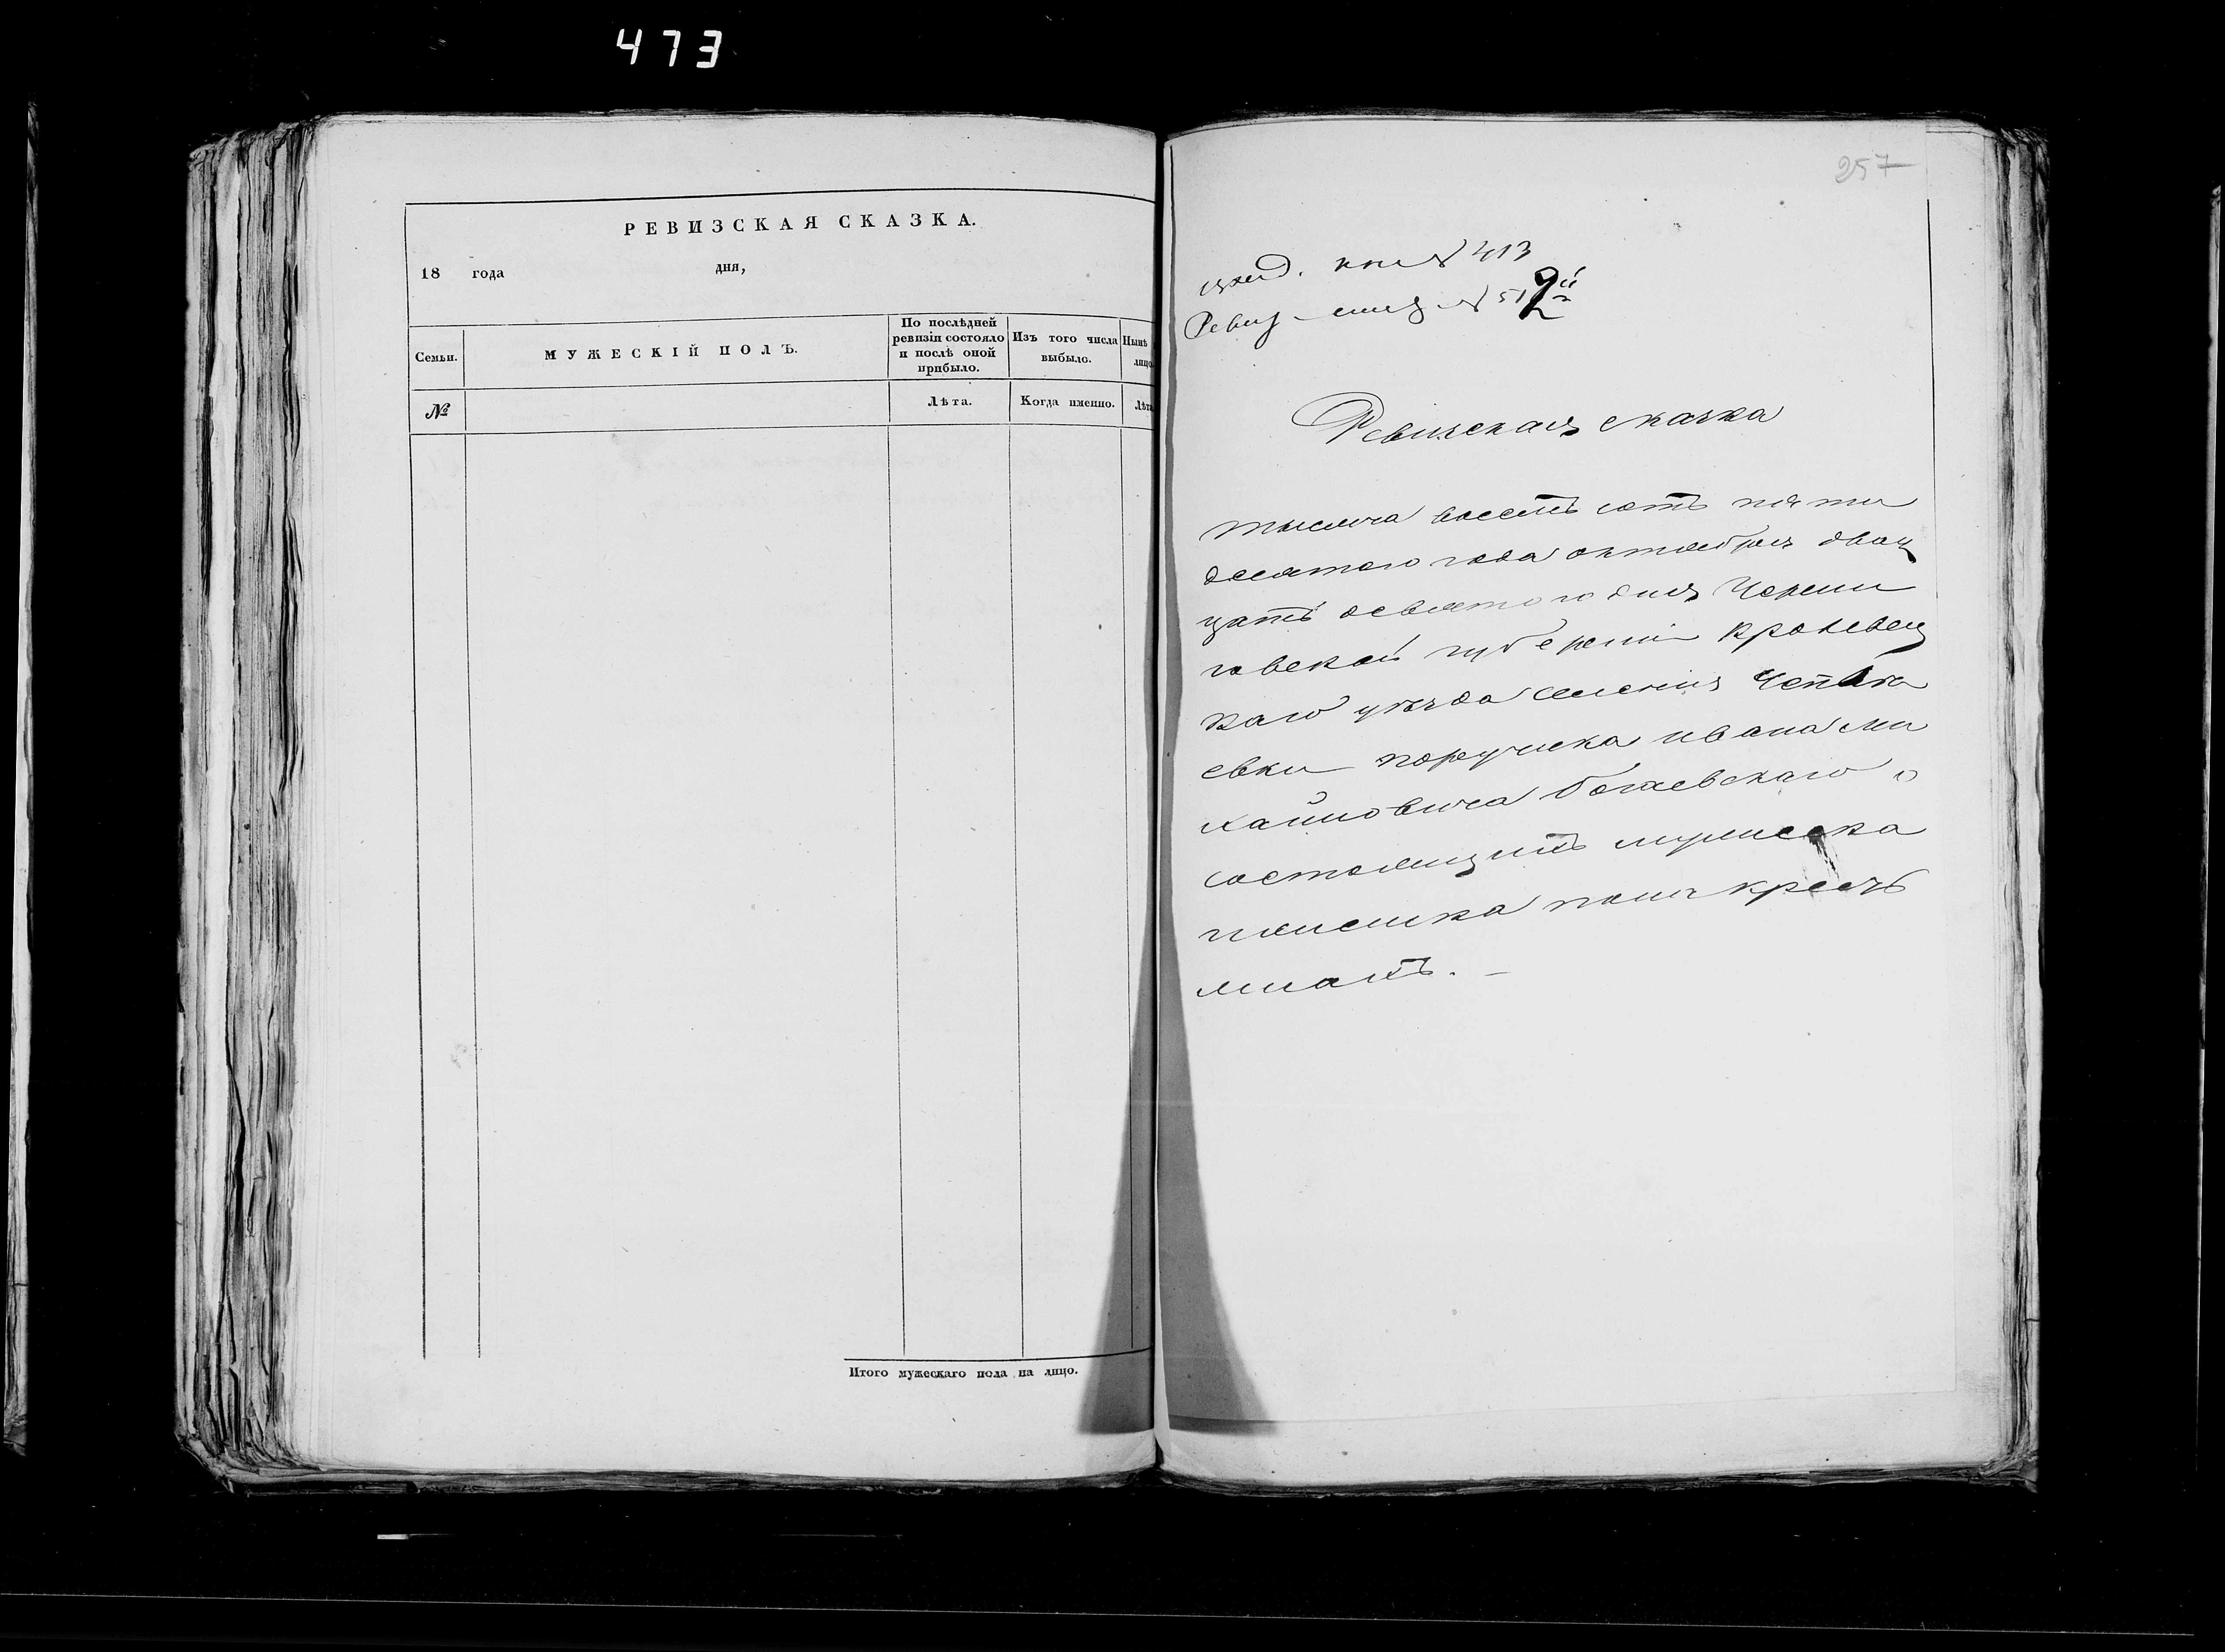 473
РЕВИЗСКАЯ СКАЗКА.
18 года дня,
Семьи.
МУЖЕСКІЙ ПОЛЪ.
По послѣдней
ревизіи состояло
и послѣ оной
прибыло.
Изъ того числа
выбыло.
Нынѣ
лицо
№
Лѣта.
Когда именно.
Лѣта
Итого мужескаго пола на лицо.
257
№ 413
Ревиз № 51
Ревизская сказка
тысяча восемь сотъ пяти
десятого года октября двад
цать девятого дня Черни
говской губерніи Кролевец
каго уѣзда селенія Чепле
евки поручика ивана Ми
хайловича Богаевскаго о
состоящихъ мужеска
женска пола кресть
янахъ. –